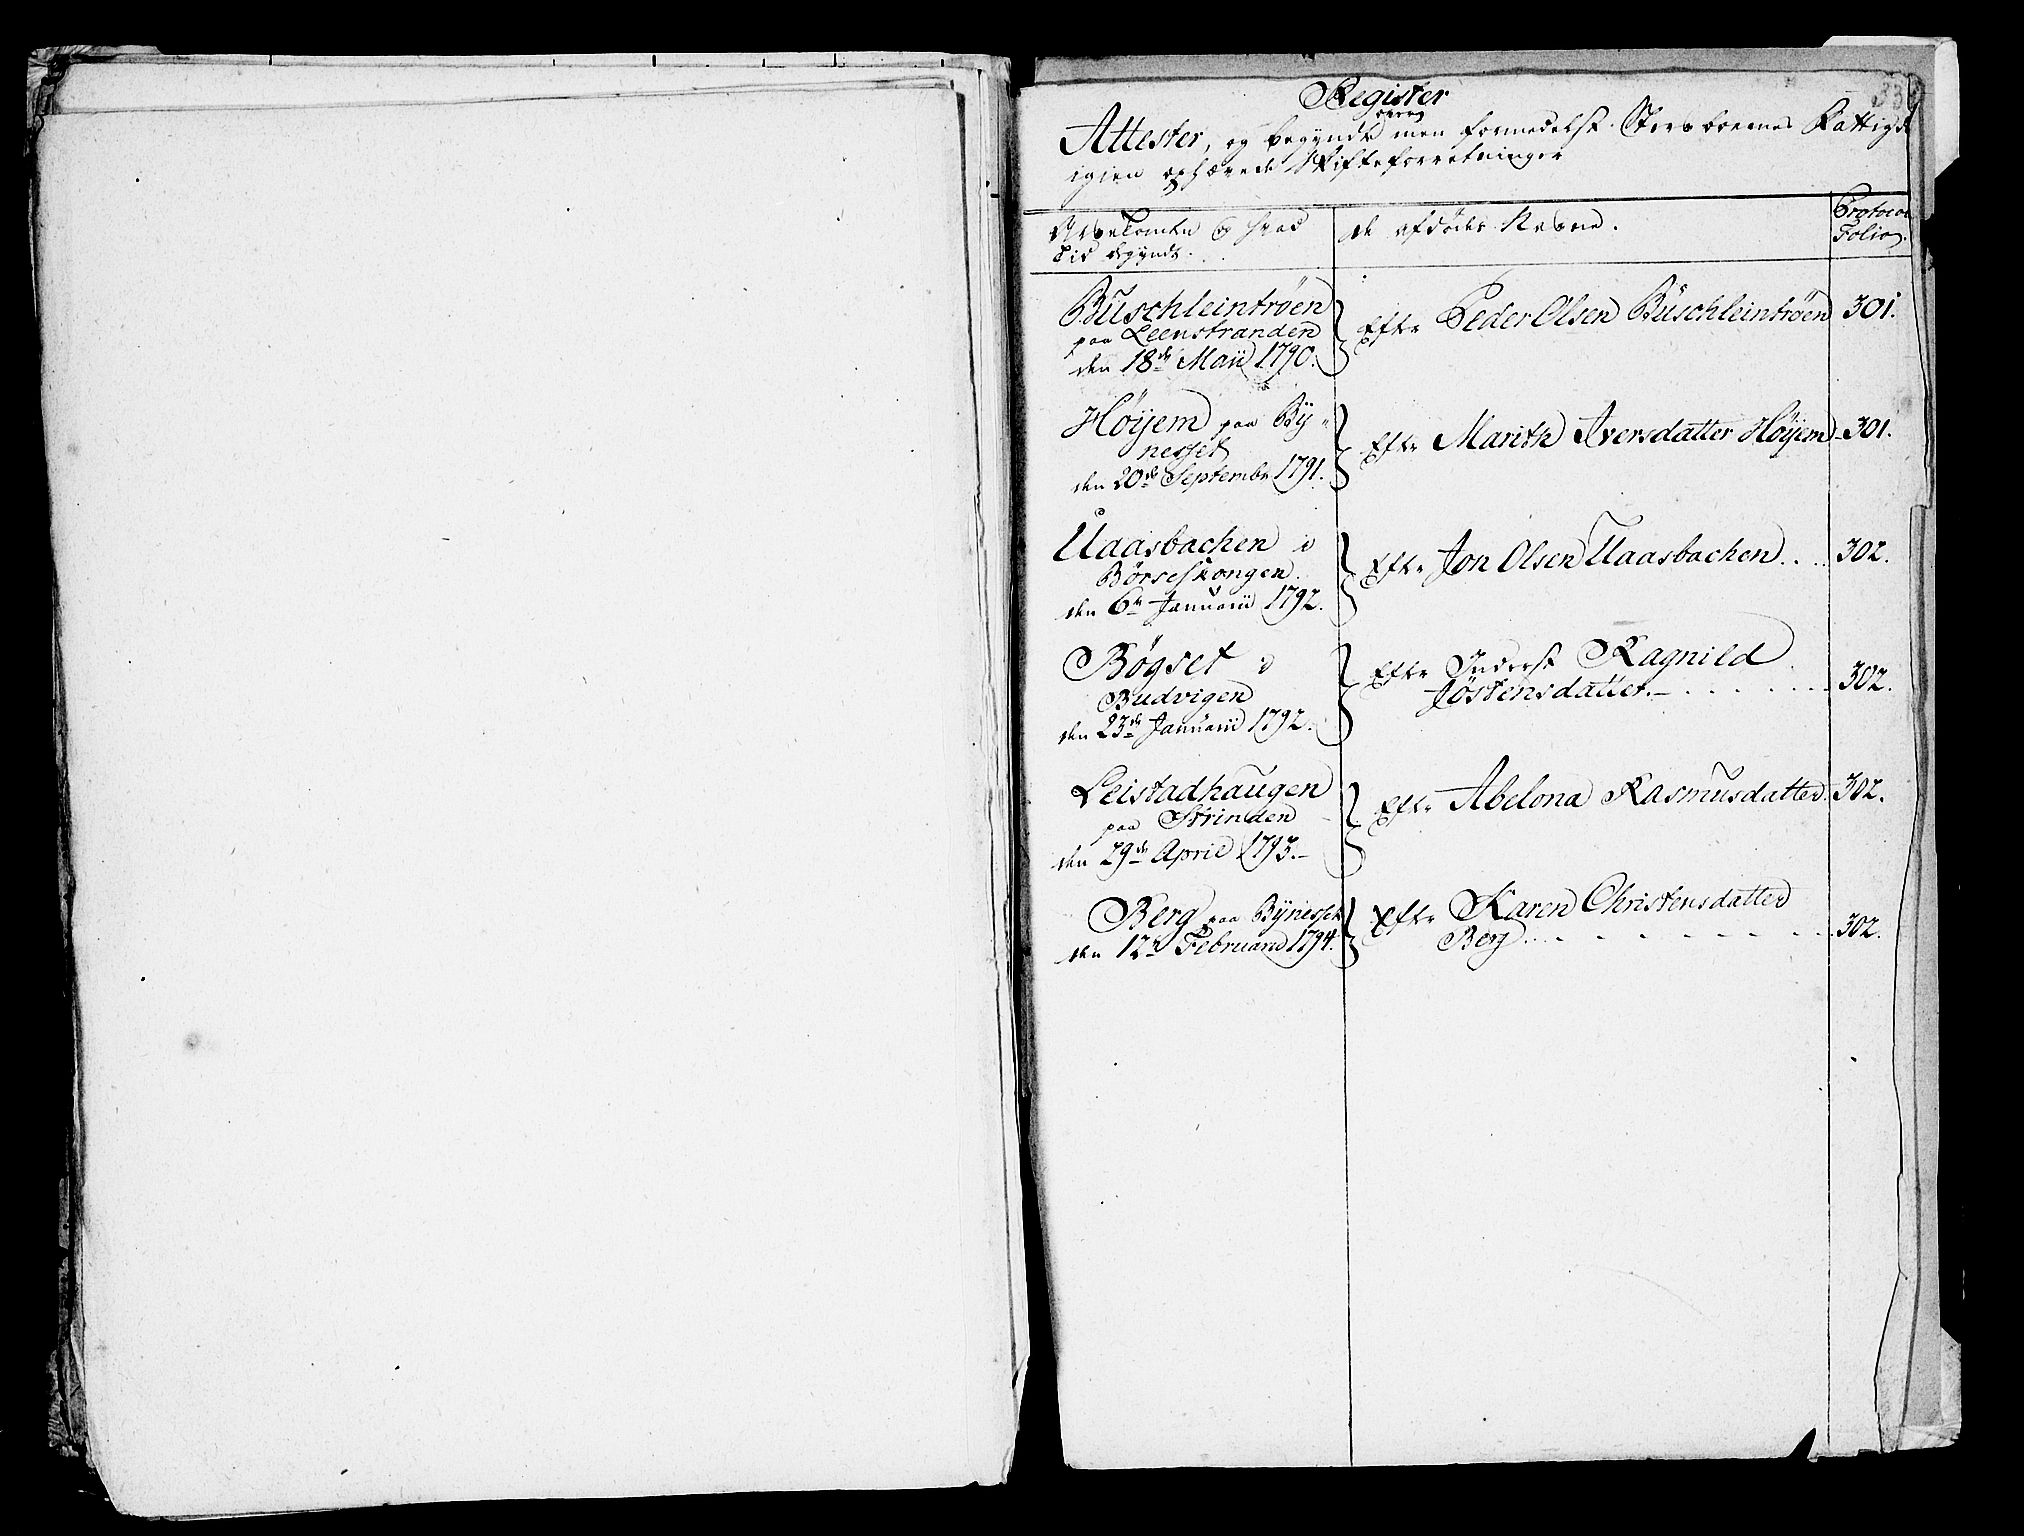 33
Register
over
Attester, og begyndte men formedelst Sterboernes Fattigd
igien ophævede Skifteforretninger
og hvad
Tid begyndt.
de afdødes Navne.
Protocol
Folio.
Buschleintrøen
paa Leenstranden
den 18de Maii 1790.
Efter Peder Olsen Buschleintrøen 301.
Høyem paa By-
nesset
den 20de Septembr 1791.
Efter Marith Iversdatter Høyem 301.
Uaasbachen i
Børseskongen
den 6te Januarii 1792.
Efter Jon Olsen Uaasbachen.... 302.
Bøgset i
Budvigen
den 23de Januarii 1792.
Efter Inderst Ragnild
Jøstensdatter. 302.
Leistadhaugen
paa Strinden
den 29de April 1793.
Efter Abelona Rasmusdatter 302.
Berg paa Bynesset
den 12te Februarii 1794.
Efter Karen Christensdatter
Berg 302.